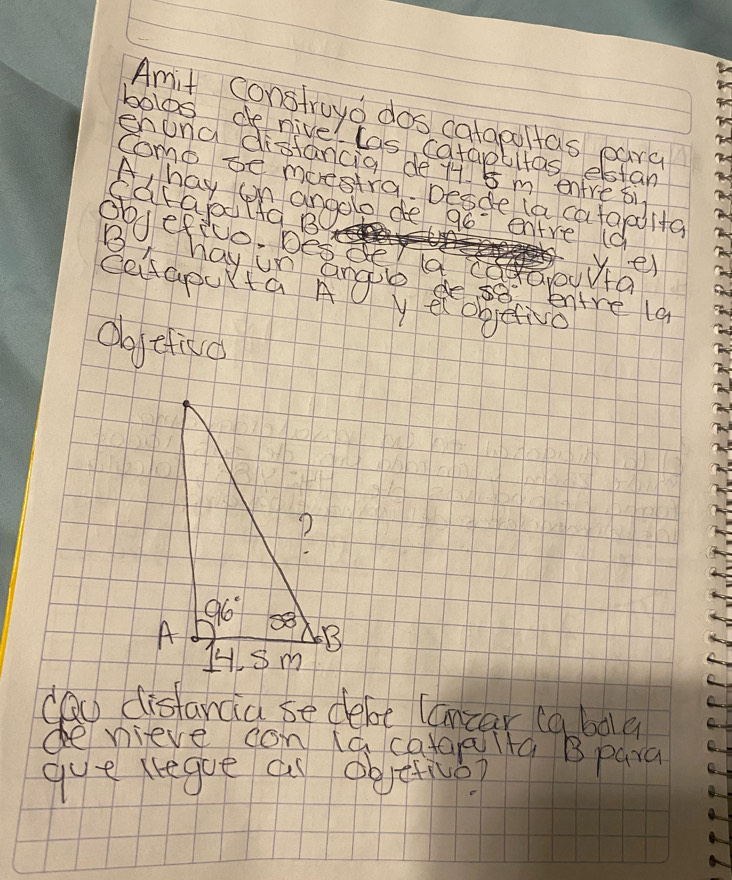 Amit construyó dos catapultas para
bolas de nive. Las catapultas estan
enuna distancia de 14.5 m entre si,
como se muestra. Desde la catapulta
A, hay un angulo de 96° entre la
catapulta B y el
objetivo. Desde la catapulta
B, hay un angulo de 58° entre la
catapulta A y el objetivo
Objetivo
?
96° 58
A B
14.5 m
¿Qu distancia se debe lanzar la bola
de nieve con la catapulta B para
que llegue al objetivo?